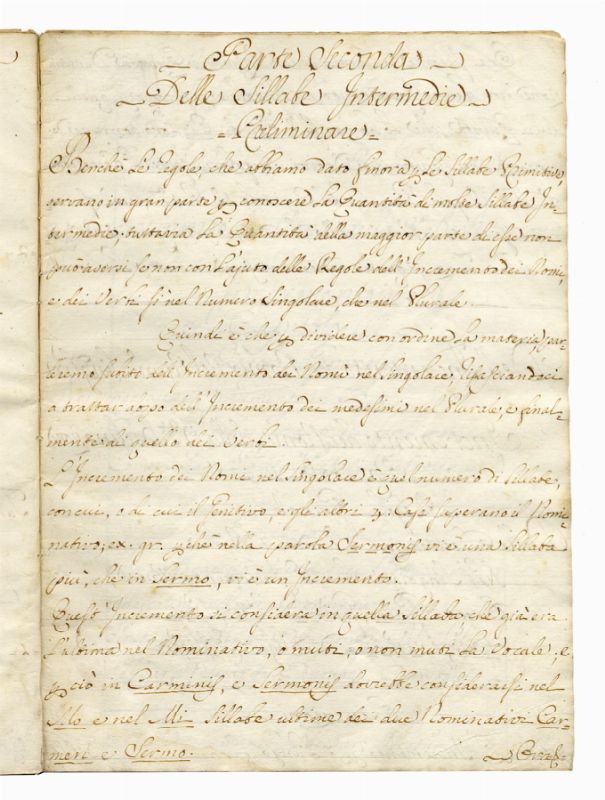 Parte Seconda
Delle Sillabe Intermedie
Preliminare
Benchè le Regole, che abbiamo dato finora p le Sillabe Primitive,
servano in gran parte p conoscere la Quantità di molte Sillabe In-
termedie, tuttavia la Quantità della maggior parte di esse non
può aversi se non con l'ajuto delle Regole dell'Incremento dei Nomi,
e dei Verbi sì nel Numero Singolare, che nel Plurale.
Quindi è che p dividere con ordine la materia, par-
leremo subito dell'Incremento dei Nomi nel Singolare,
a trattar dopo dell'Incremento dei medesimi nel Plurale, e final-
mente di quello dei Verbi.
L'Incremento dei Nomi nel Singolare è quel numero di Sillabe,
con cui, o di cui il Genitivo, e gli altri Casi superano il Nomi-
nativo, ex. gr. pchè nella parola Sermonis vi è una Sillaba
più, che in Sermo, vi è un Incremento.
Quest'Incremento si considera in quella Sillaba, che già era
l'ultima nel Nominativo, o muti, o non muti la Vocale, e
p ciò in Carminis, e Sermonis dovrebbe considerarsi nel
e nel Mi Sillabe ultime dei due Nominativi Car-
men e Sermo.